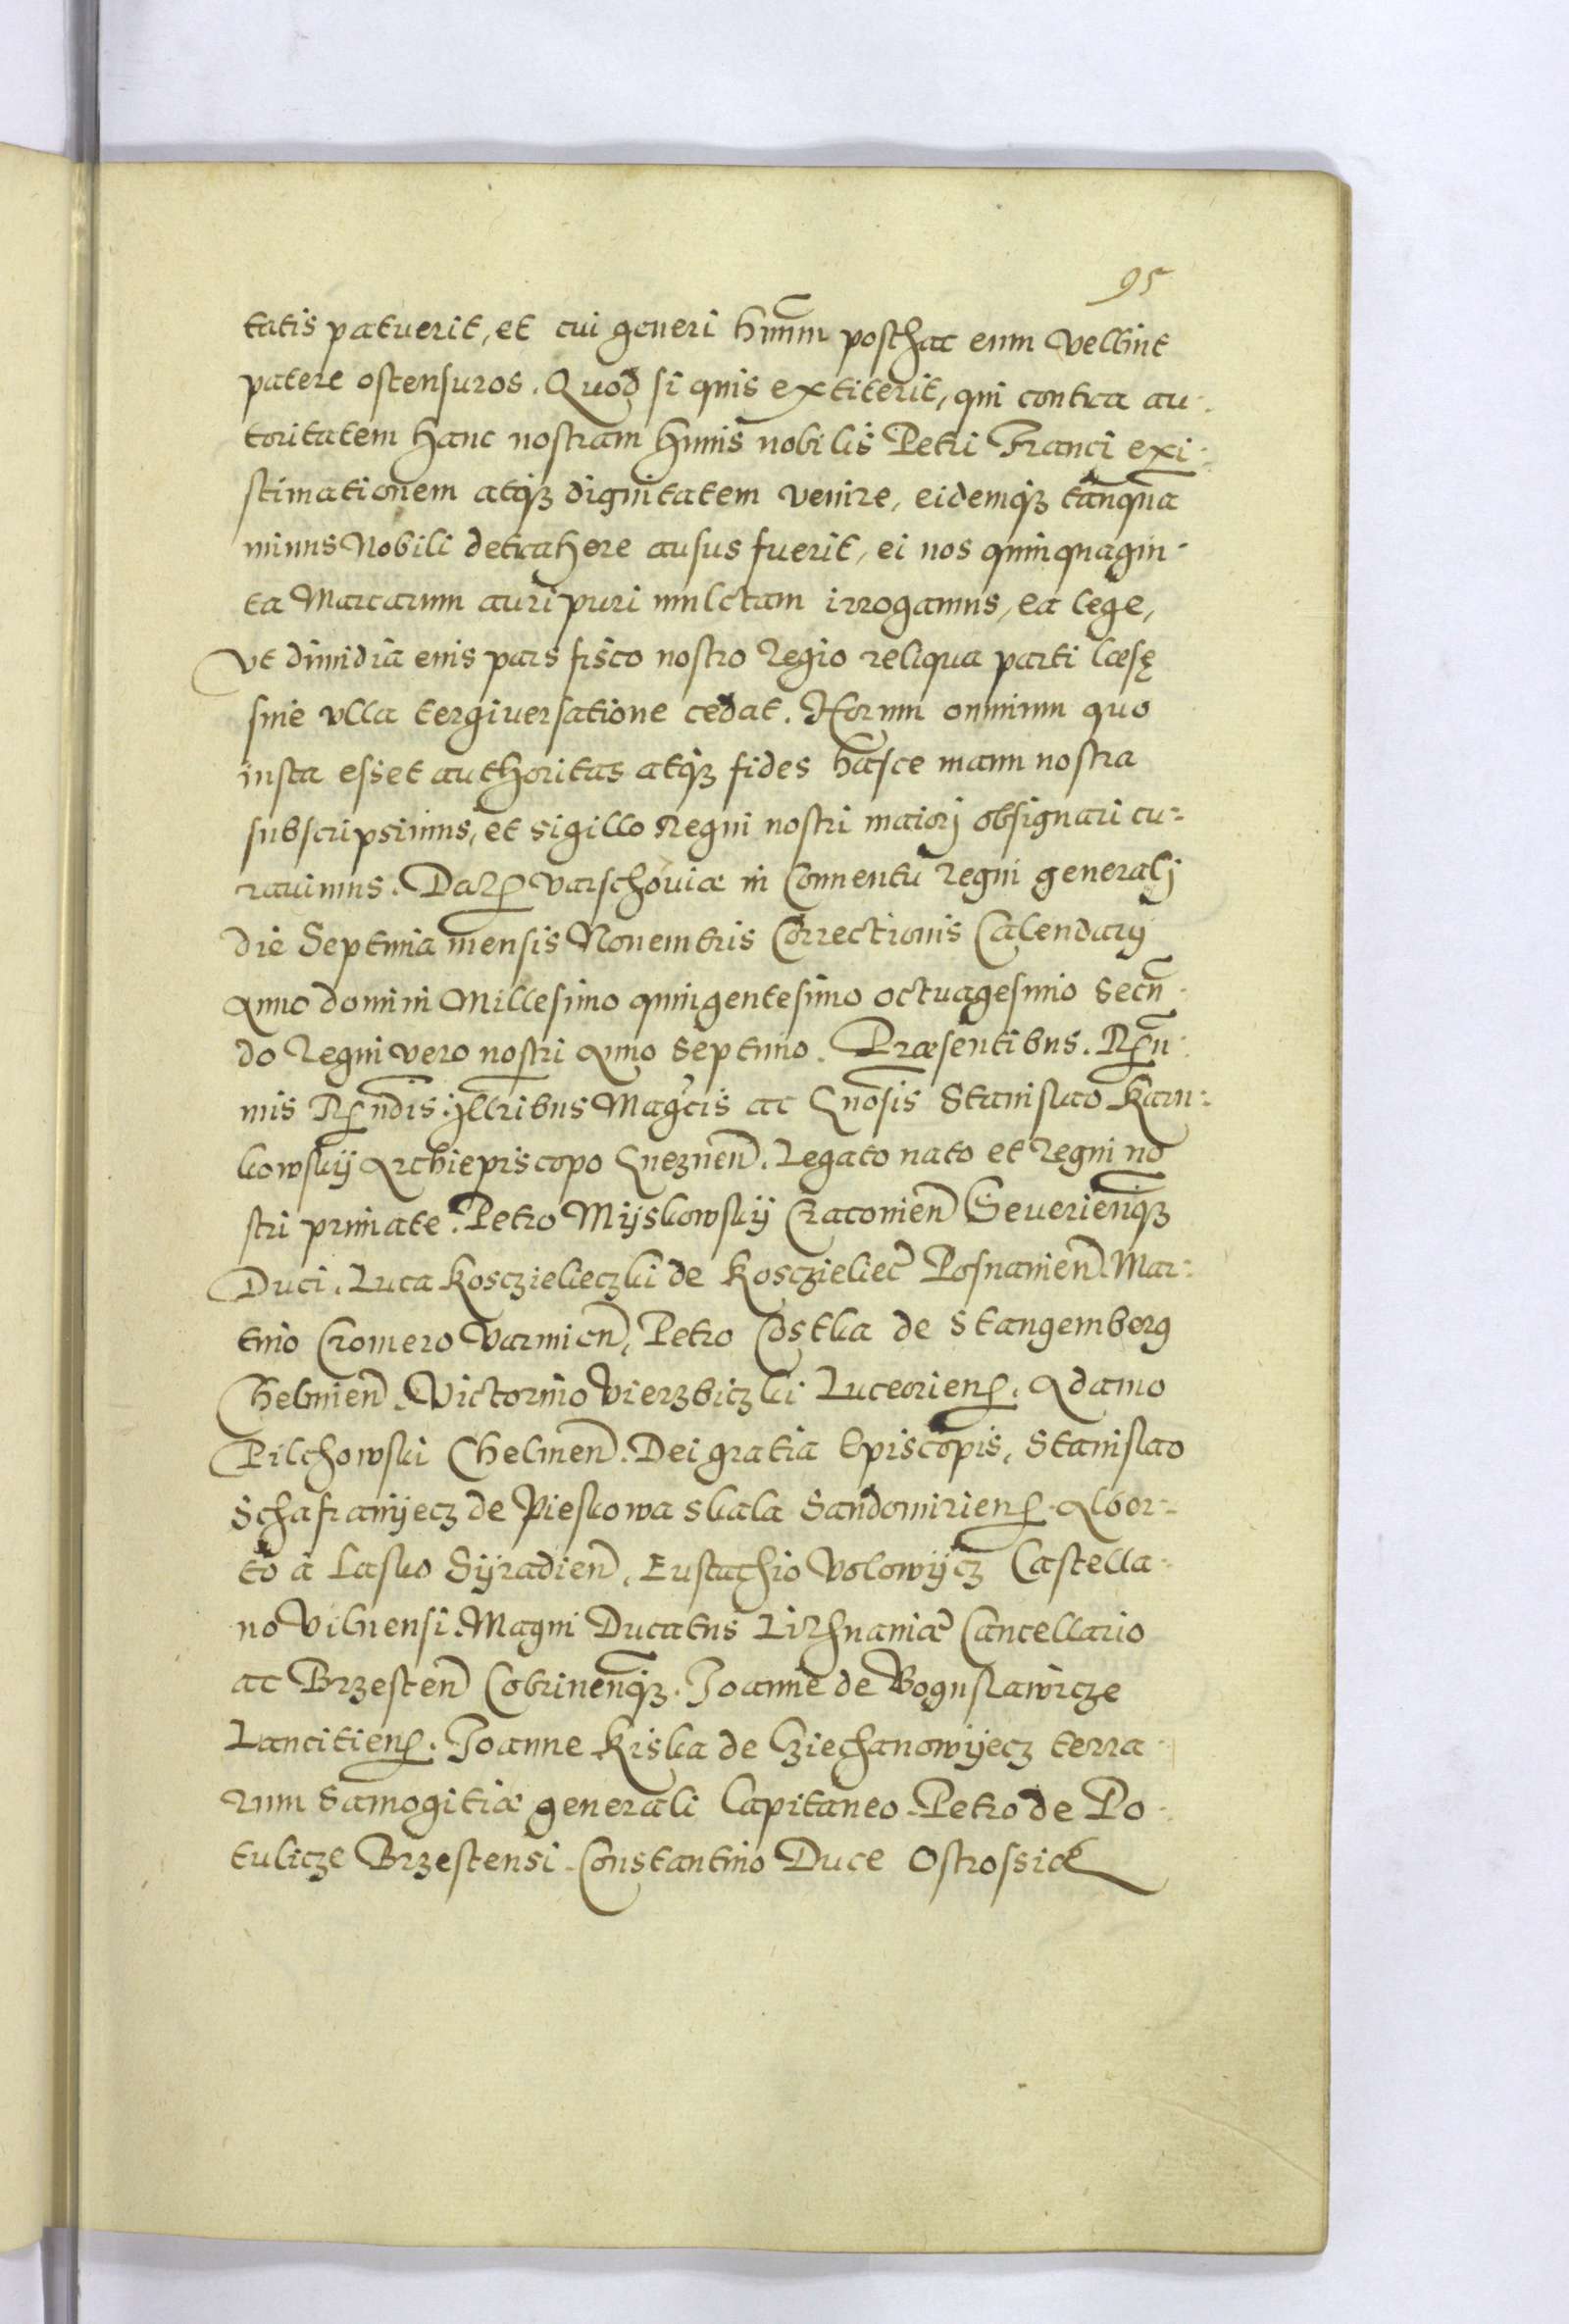 95
tatis patuerit, et cui generi hninm̃ posthac eum vellint
patere ostensuros. Quod si quis extiterit, qui contra au-
toritatem hanc nostram huius nobilis Petri Franci exi-
stimationem atq₃ dignitatem venire, eidemq₃ tanquã
minus Nobili detrahere ausus fuerit, ei nos quinquagin-
ta Marcarum auri puri mulctam irrogamus, ea lege,
vt dimidia eius pars fisco nostro Regio reliqua parti læsę
sine vlla tergiuersatione cedat. Horum omnium quo
iusta esset authoritas atq₃ fides hasce manu nostra
subscripsimus, et sigillo Regni nostri maiorj obsignari cu-
rauimus. Dat̃ Varschouiæ in Conuentu Regni generalj
die Septima mensis Nouembris Correctionis Calendarij
Anno domini Millesimo quingentesimo octuagesimo Secũ-
do Regni vero nostri Anno Septimo. Præsentibus. Rñ-
mis Rñdis Illribus Magcis ac Gnosis Stanislao Karn-
kowskij Archiepiscopo Gneznen̄. Legato nato et Regni no
stri primate. Petro Mijskowskij Cracouien̄ Seuerien̄q₃
Duci. Luca Kosczieleczki de Kosczielec Posnanien̄. Mar-
tino Cromero Varmien̄, Petro Costka de Stangemberg
Chelmien̄. Victorino Vierzbiczki Luceorien̄. Adamo
Pilchowski Chelmen̄. Dei gratia Episcopis, Stanislao
Schafranijecz de Pieskowa skala Sandomirien̄. Alber-
to à Lasko Sijradien̄, Eustachio Volowijcz Castella-
no Vilnensi. Magni Ducatus Lithuaniæ Cancellario
ac Brzesten̄ Cobrinen̄q₃. Joanne de Boguslawicze
Lancitien̄. Joanne Kiska de Cziechanowijecz terra-
rum Samogitiæ generali Capitaneo. Petro de Po-
tulicze Brzestensi. Constantino Duce Ostrossiæ